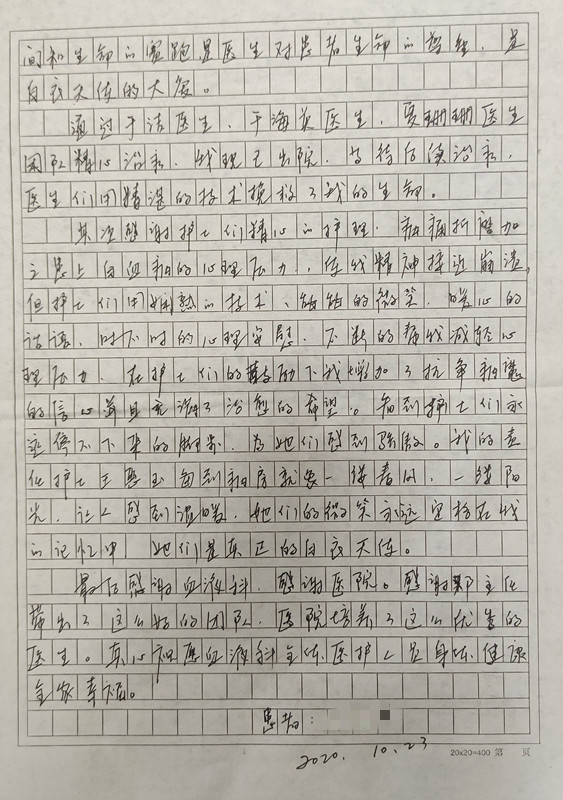 间和生命的赛跑是医生对患者生命的尊重，是
白衣天使的大爱。
通过于洁医生、于海英医生、夏珊珊医生
团队精心治疗，我现已出院，等待后续治疗，
医生们用精湛的技术挽救了我的生命。
其次感谢护士们精心的护理，病痛折磨加
之患上白血病的心理压力，使我精神接近崩溃，
但护士们用娴熟的技术、的微笑、暖心的
话语，时不时的心理安慰，不断的帮我减轻心
理压力，在护士们的鼓励下我增加了抗争病魔
的信心并且充满了治愈的希望。看到护士们永
远停不下来的脚步，为她们感到骄傲。我的责
任护士王 每到病房就像一缕春风，一缕阳
光，让人感到温暖，她们的微笑永远定格在我
的记忆中 她们是真正的白衣天使。
最后感谢血液科，感谢医院。感谢郭主任
带出了这么好的团队，医院培养了这么优秀的
医生。真心祝愿血液科全体医护人员身体健康
全家幸福。
患者：
2020. 10. 23
20x20=400 第 页